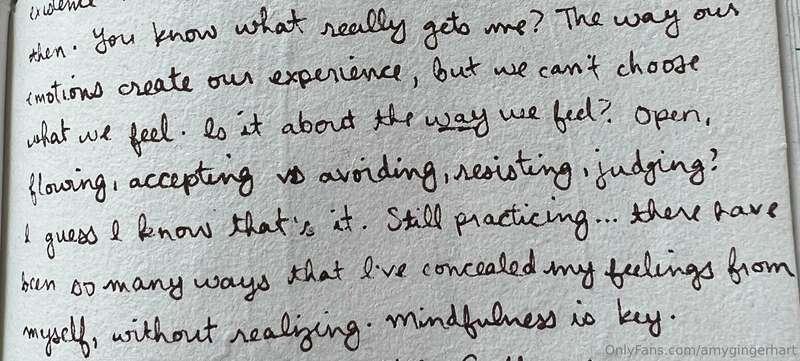 evidence
then. You know what really gets me? The way our
emotions create our experience, but we can't choose
what we feel. Is it about the way we feel? Open,
flowing, accepting vs avoiding, resisting, judging?
I guess I know that's it. Still practicing... there have
been so many ways that I've concealed my feelings from
myself, without realizing. Mindfulness is key.
OnlyFans.com/amygingerhart